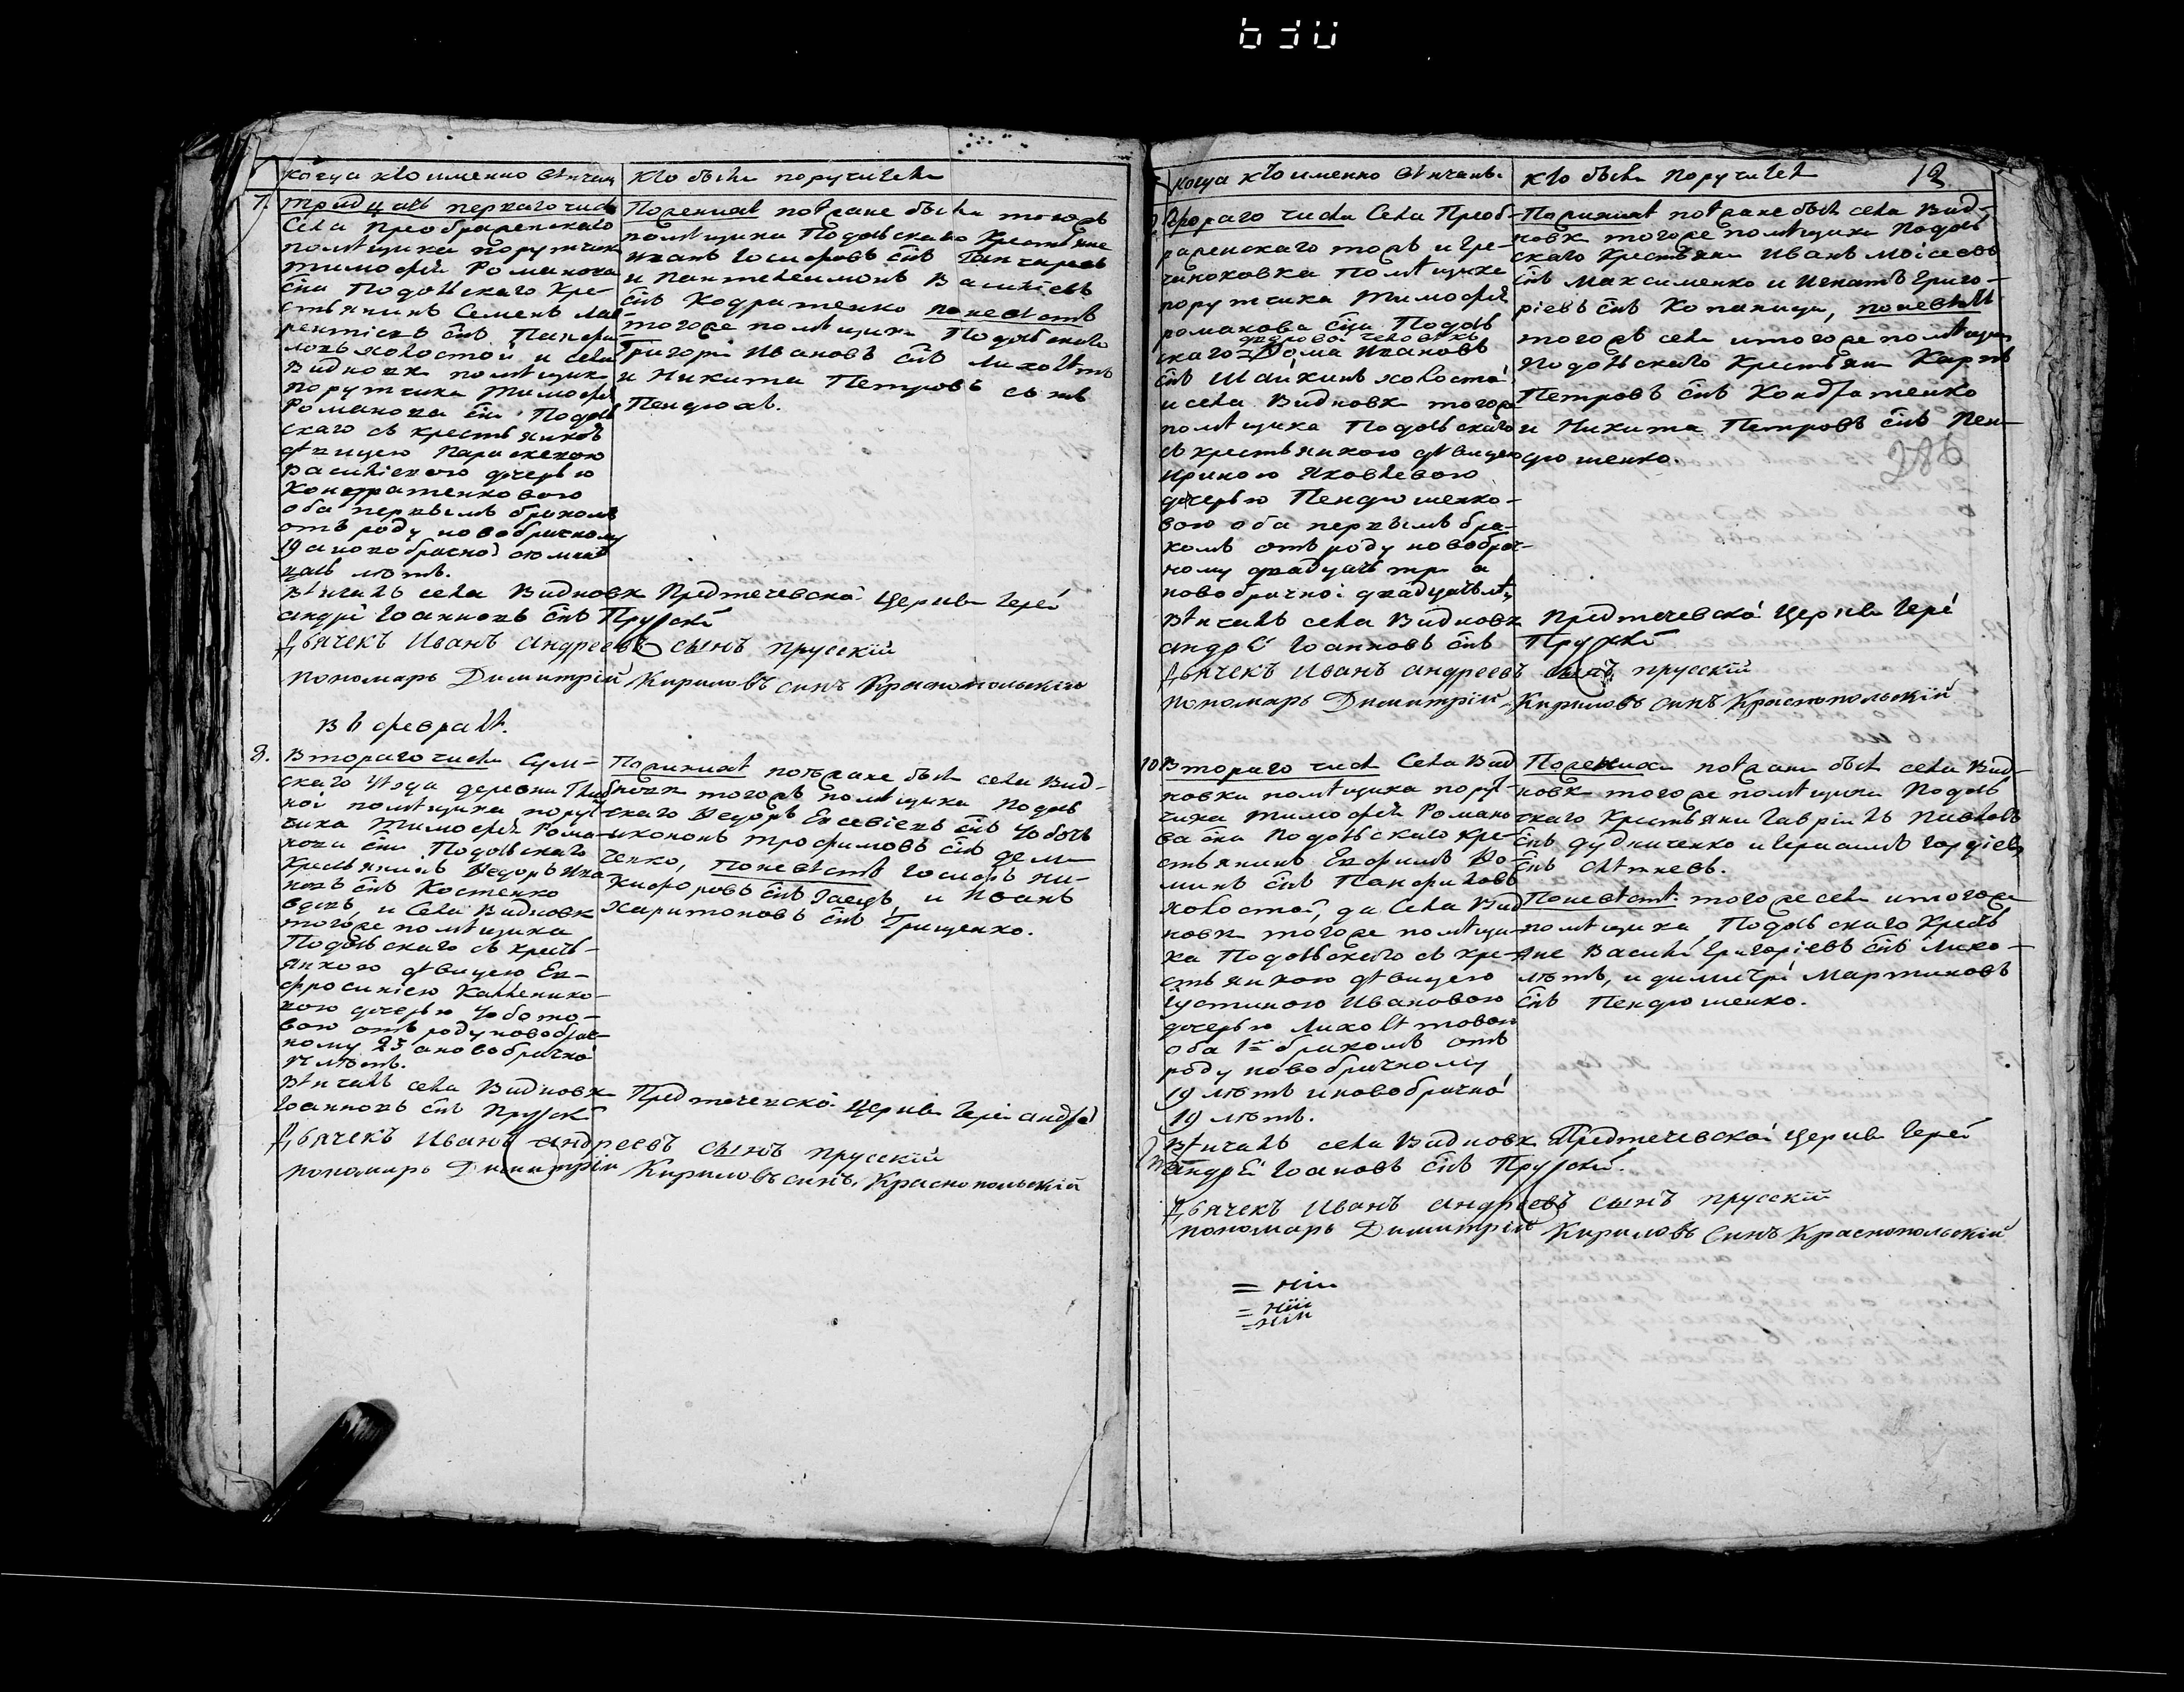 когда кто именно вѣнчан
Кто были поручители
7.
Тридцать перваго числа
Села Преображенскаго
помѣщика поручика
Тимофея Романова
сна Подолскаго кре-
стьянинъ Семенъ Лав-
рентіевъ снъ Панфи-
ловъ холостой и села
Видновки помѣщика
поручика Тимофея
Романова сна Подол
скаго съ крестьянкою
дѣвицею Параскевою
Василіевою дочерью
Кондратенковою
оба первымъ бракомъ
отъ роду новобрачному
19 а новобрачной
лѣтъ.
По женихѣ
помѣщика Подолскаго Крестьяне
Иванъ Іосифовъ снъ
и Пантелеимонъ Василіевъ
снъ Кодратенко по невѣстѣ
того же помѣщика Подолскаго
Григорій Ивановъ снъ Лихолѣтъ
и Никита Петровъ снъ
Пендюхъ.
вѣнчалъ села Видновки Предтечевской церкви Іерей
андрей Іоанновъ снъ Прускій
Дьячекъ Иванъ Андреевъ сынъ прусскій
пономарь Димитрій Кириловъ синъ Краснопольскій
Въ февралѣ.
8.
Втораго числа Сум-
скаго уѣзда деревни
ной помѣщика пору
чика Тимофея Рома-
нова сна Подолскаго
Крестьянинъ Ѳедоръ Ива
новъ снъ Костенко
вдовъ, и Села Видновки
того же помѣщика
Подолскаго съ кресть-
янкою дѣвицею Ев-
фросиніею Калленико-
вою дочерью Чобото-
вою отъ роду новобрач-
ному 25 а новобрачной
лѣтъ.
По женихѣ поѣзжане были села Вид-
новки того жъ помѣщика Подол
скаго Ѳедоръ Евсевіевъ снъ Чобот
и кононъ трофимовъ снъ деми
ченко, по невѣстѣ Іосифъ Ни-
кифоровъ снъ Заецъ, и Иванъ
Харитоновъ снъ Грищенко.
Вѣнчалъ села Видновки Предтечевской церкви Іерей андрей
Іоанновъ снъ Прускій
Дьячекъ Иванъ андреевъ сынъ прусскій
пономарь Димитрій Кириловъ синъ, Краснопольскій
Когда кто именно вѣнчанъ
кто были Поручители
12
Втораго числа Села Преоб-
раженскаго тожъ и Гре-
чиноховка Помѣщика
поручика Тимофея
романова сна Подол
дворовой человѣкъ
скаго Ѳома Ивановъ
снъ Шайкинъ холостой
и села Видновки того же
помѣщика Подолскаго
съ крестьянкою дѣвицею
ириною Яковлевою
дочерью Пендюшенко-
вою оба первымъ бра-
комъ отъ роду новобрач-
ному двадцать три а
новобрачной двадцать
По женихѣ поѣзжане были села Вид-
новки того же помѣщика Подол
скаго Крестьяни Иванъ моисеевъ
снъ Максименко и Игнатъ Григо-
ріевъ снъ Копаница, по невѣстѣ
того жъ села и того же помѣщика
Подолскаго Крестьяни Карпъ
Петровъ снъ Кондратенко
и Никита Петровъ снъ Пен-
дюшенко.
286
Вѣнчалъ села Видновки Предтечевской Церкви Іерей
андрей Іоанновъ снъ Прускій
Дьячекъ Иванъ андреевъ сынъ прусскій
пономарь Димитрій Кириловъ синъ Краснопольскій
10
Втораго числа Села Вид
новки помѣщика пору-
чика Тимофея Романо
ва сна Подолскаго кре-
стьянинъ Евфимъ Ѳо-
минъ снъ Панфиловъ
холостой, да Села Вид
новки того же помѣщи-
ка Подолскаго съ кре-
стьянкою дѣвицею
Іустиною Ивановою
дочерью Лихолѣтовою
оба 1мъ бракомъ отъ
роду новобрачному
19 лѣтъ и новобрачной
19 лѣтъ.
По женихѣ поѣзжани были села Вид-
новки того же помѣщика Подол
скаго Крестьяни Гавріилъ Павловъ
снъ дудниченко и Герасимъ Гордіевъ
снъ
По невѣстѣ: того же села и того же
помѣщика Подолскаго Кресть
яне Василій Григоріевъ снъ Лихо-
лѣтъ, и димитрій Мартиновъ
снъ Пендюшенко.
Вѣнчалъ села Видновки Предтечевской Церкви Іерей
андрей Іоановъ снъ Прускій.
Дьячекъ Иванъ андреевъ сынъ прусскій
пономарь Димитрій Кириловъ Синъ Краснопольскій